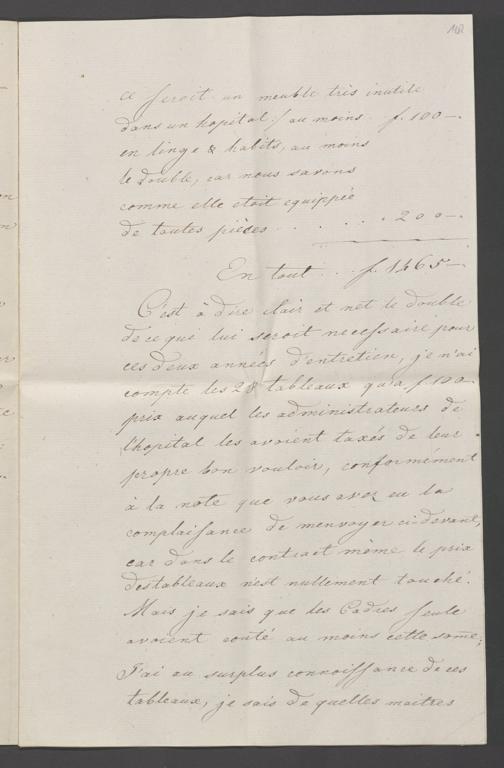 ce seroit un meuble très inutile
dans un hopital / au moins f. 100 –.
en linge & habits, au moins
le double, car nous savons
comme elle étoit equippée
de toutes pièces . . . . . . 200 –.
En tout . . . f. 1465 –
C'est à dire clair et net le double
de ce qui lui seroit necessaire pour
ces deux années d'entretien, je n'ai
compté les 28 tableaux qu'a f. 100 –
prix auquel les administrateurs de
l'hopital les avoient taxés de leur
propre bon vouloir, conformément
à la note que vous avez eu la
complaisance de menvoyer ci-devant,
car dans le contract même le prix
des tableaux n'est nullement touché.
Mais je sais que les Cadres seuls
avoient couté au moins cette some;
J'ai au surplus connoissance de ces
tableaux, je sais de quelles maitres